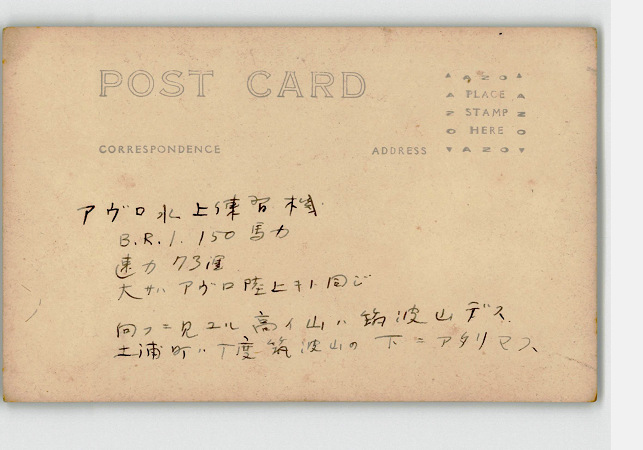 POST CARD
CORRESPONDENCE
ADDRESS
AZO
PLACE
STAMP
HERE
AZO
アヴロ水上練習機
B.R.1. 150馬力
速力 73浬
大サハアヴロ陸上キト同じ
向フニ見ユル高イ山ハ筑波山デス
土浦町ハ丁度筑波山の下ニアタリマス、